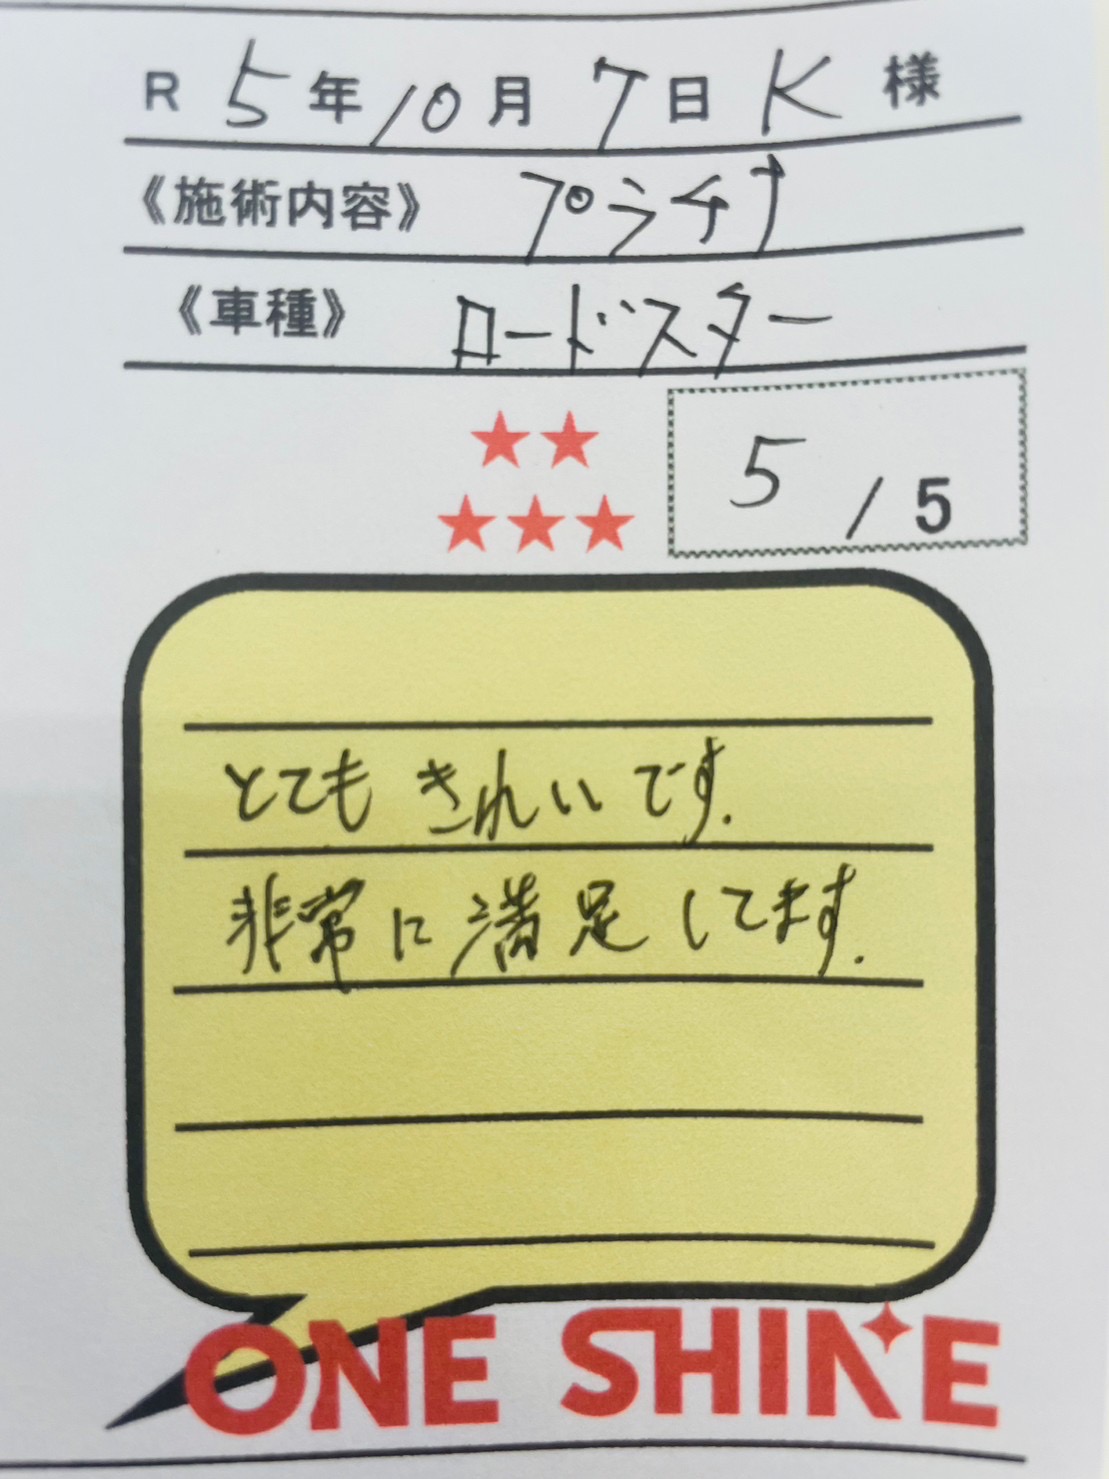 R 5年10月7日 K 様
《施術内容》 プラチナ
《車種》 ロードスター
5 / 5
とても きれいです.
非常に満足してます.
ONE SHINE